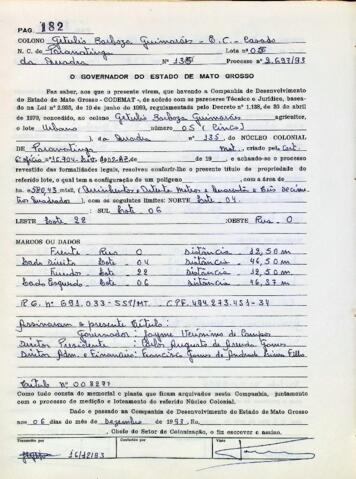 PAG 182
COLONO Getulio Barboza Guimarães - B.C. - Casado
N. C. de Paranatinga Lote nº 05
da Quadra Nº 135 Processo 2.697/93
O GOVERNADOR DO ESTADO DE MATO GROSSO
Faz saber, aos que o presente virem, que havendo a Companhia de Desenvolvimento
do Estado de Mato Grosso - CODEMAT -, de acordo com os pareceres Técnico e Jurídico, basea-
do na Lei nº de de junho de regulamentada pelo Decreto nº 1.138, de 30 de abril
de 1970, concedido, ao colono Getulio Barboza Guimarães agricultor,
o lote Urbano número 05 (Cinco)
da Quadra 135, DO NÚCLEO COLONIAL
DE Paranatinga Mat. criado pela
de 19 e achando-se o processo
revestido das formalidades legais, resolveu conferir-lhe o presente título de propriedade do
referido lote, o qual tem a configuração de um polígono com a área de
com os seguintes limites: NORTE Lote 04.
: SUL Lote 06
LESTE Lote 22 :OESTE Rua O
MARCOS OU DADOS
Frente - Rua O distância 12,50 m
Lado direito Lote 04 distância 46,50 m
Fundos Lote 22 distância 12,50 m
Lado Esquerdo - Lote 06 distância 46,37 m
R.G. nº 691.033-SSP/MT. CPF. 494.273.451-34
Assinaram o presente título:
Governador: Jayme Veríssimo de Campos
Diretor Presidente: Augusto de Arruda Gomes
Diretor Adm. e Financeiro: Francisco Gomes de Andrade Lima Filho
Título nº 008291
Como tudo consta do memorial e planta que ficam arquivados nesta Companhia, juntamente
com o processo de medição e loteamento do referido Núcleo Colonial.
Dado e passado na Companhia de Desenvolvimento do Estado de Mato Grosso
aos 06 dias do mês de Dezembro de 1993. Eu,
, Chefe do Setor de Colonização, o fiz escrever e assino.
Transcrito por Conferido por Visto
16/12/93